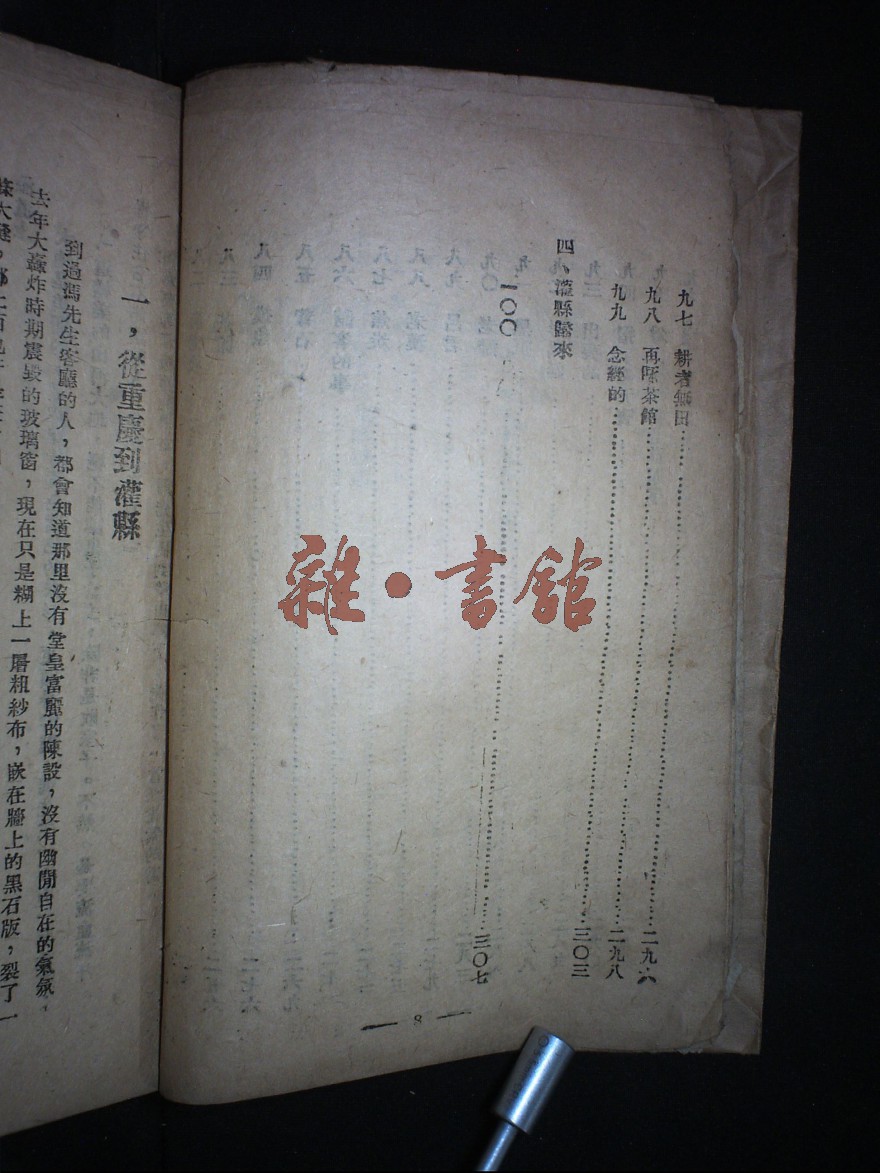 九七　耕者無田……二九六
九八　再　茶館……二九八
九九　念經的……三〇三
四、灌縣歸來
一〇〇……三〇七
— 8 —
雜·書館
一，從重慶到灌縣
到過馮先生客廳的人，都會知道那里沒有堂皇富麗的陳設，沒有幽閒自在的氣氛，
去年大轟炸時期震毀的玻璃窗，現在只是糊上一層粗紗布，嵌在牆上的黑石版，裂了一
條大縫，